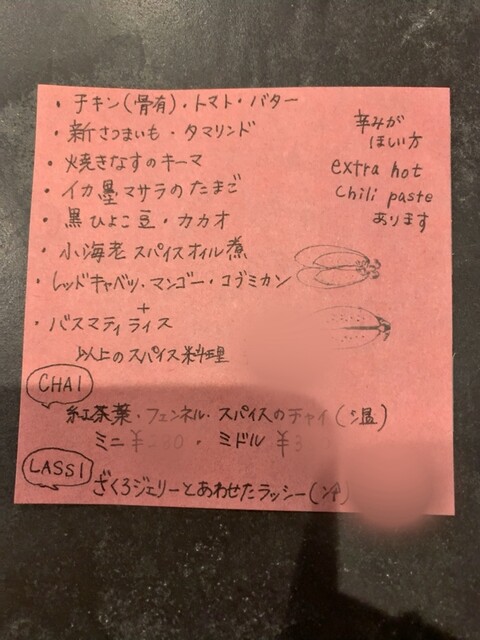 ・チキン(骨有)・トマト・バター
・新さつまいも・タマリンド
・焼きなすのキーマ
・イカ墨マサラのたまご
・黒ひよこ豆・カカオ
・小海老スパイスオイル煮
・レッドキャベツ・マンゴー・コブミカン
+
・バスマティライス
以上のスパイス料理
辛みが
ほしい方
extra hot
chili paste
あります
CHAI
紅茶葉・フェンネル・スパイスのチャイ(温)
ミニ ¥ ・ ミドル ¥3
LASSI
ざくろジェリーとあわせたラッシー(冷